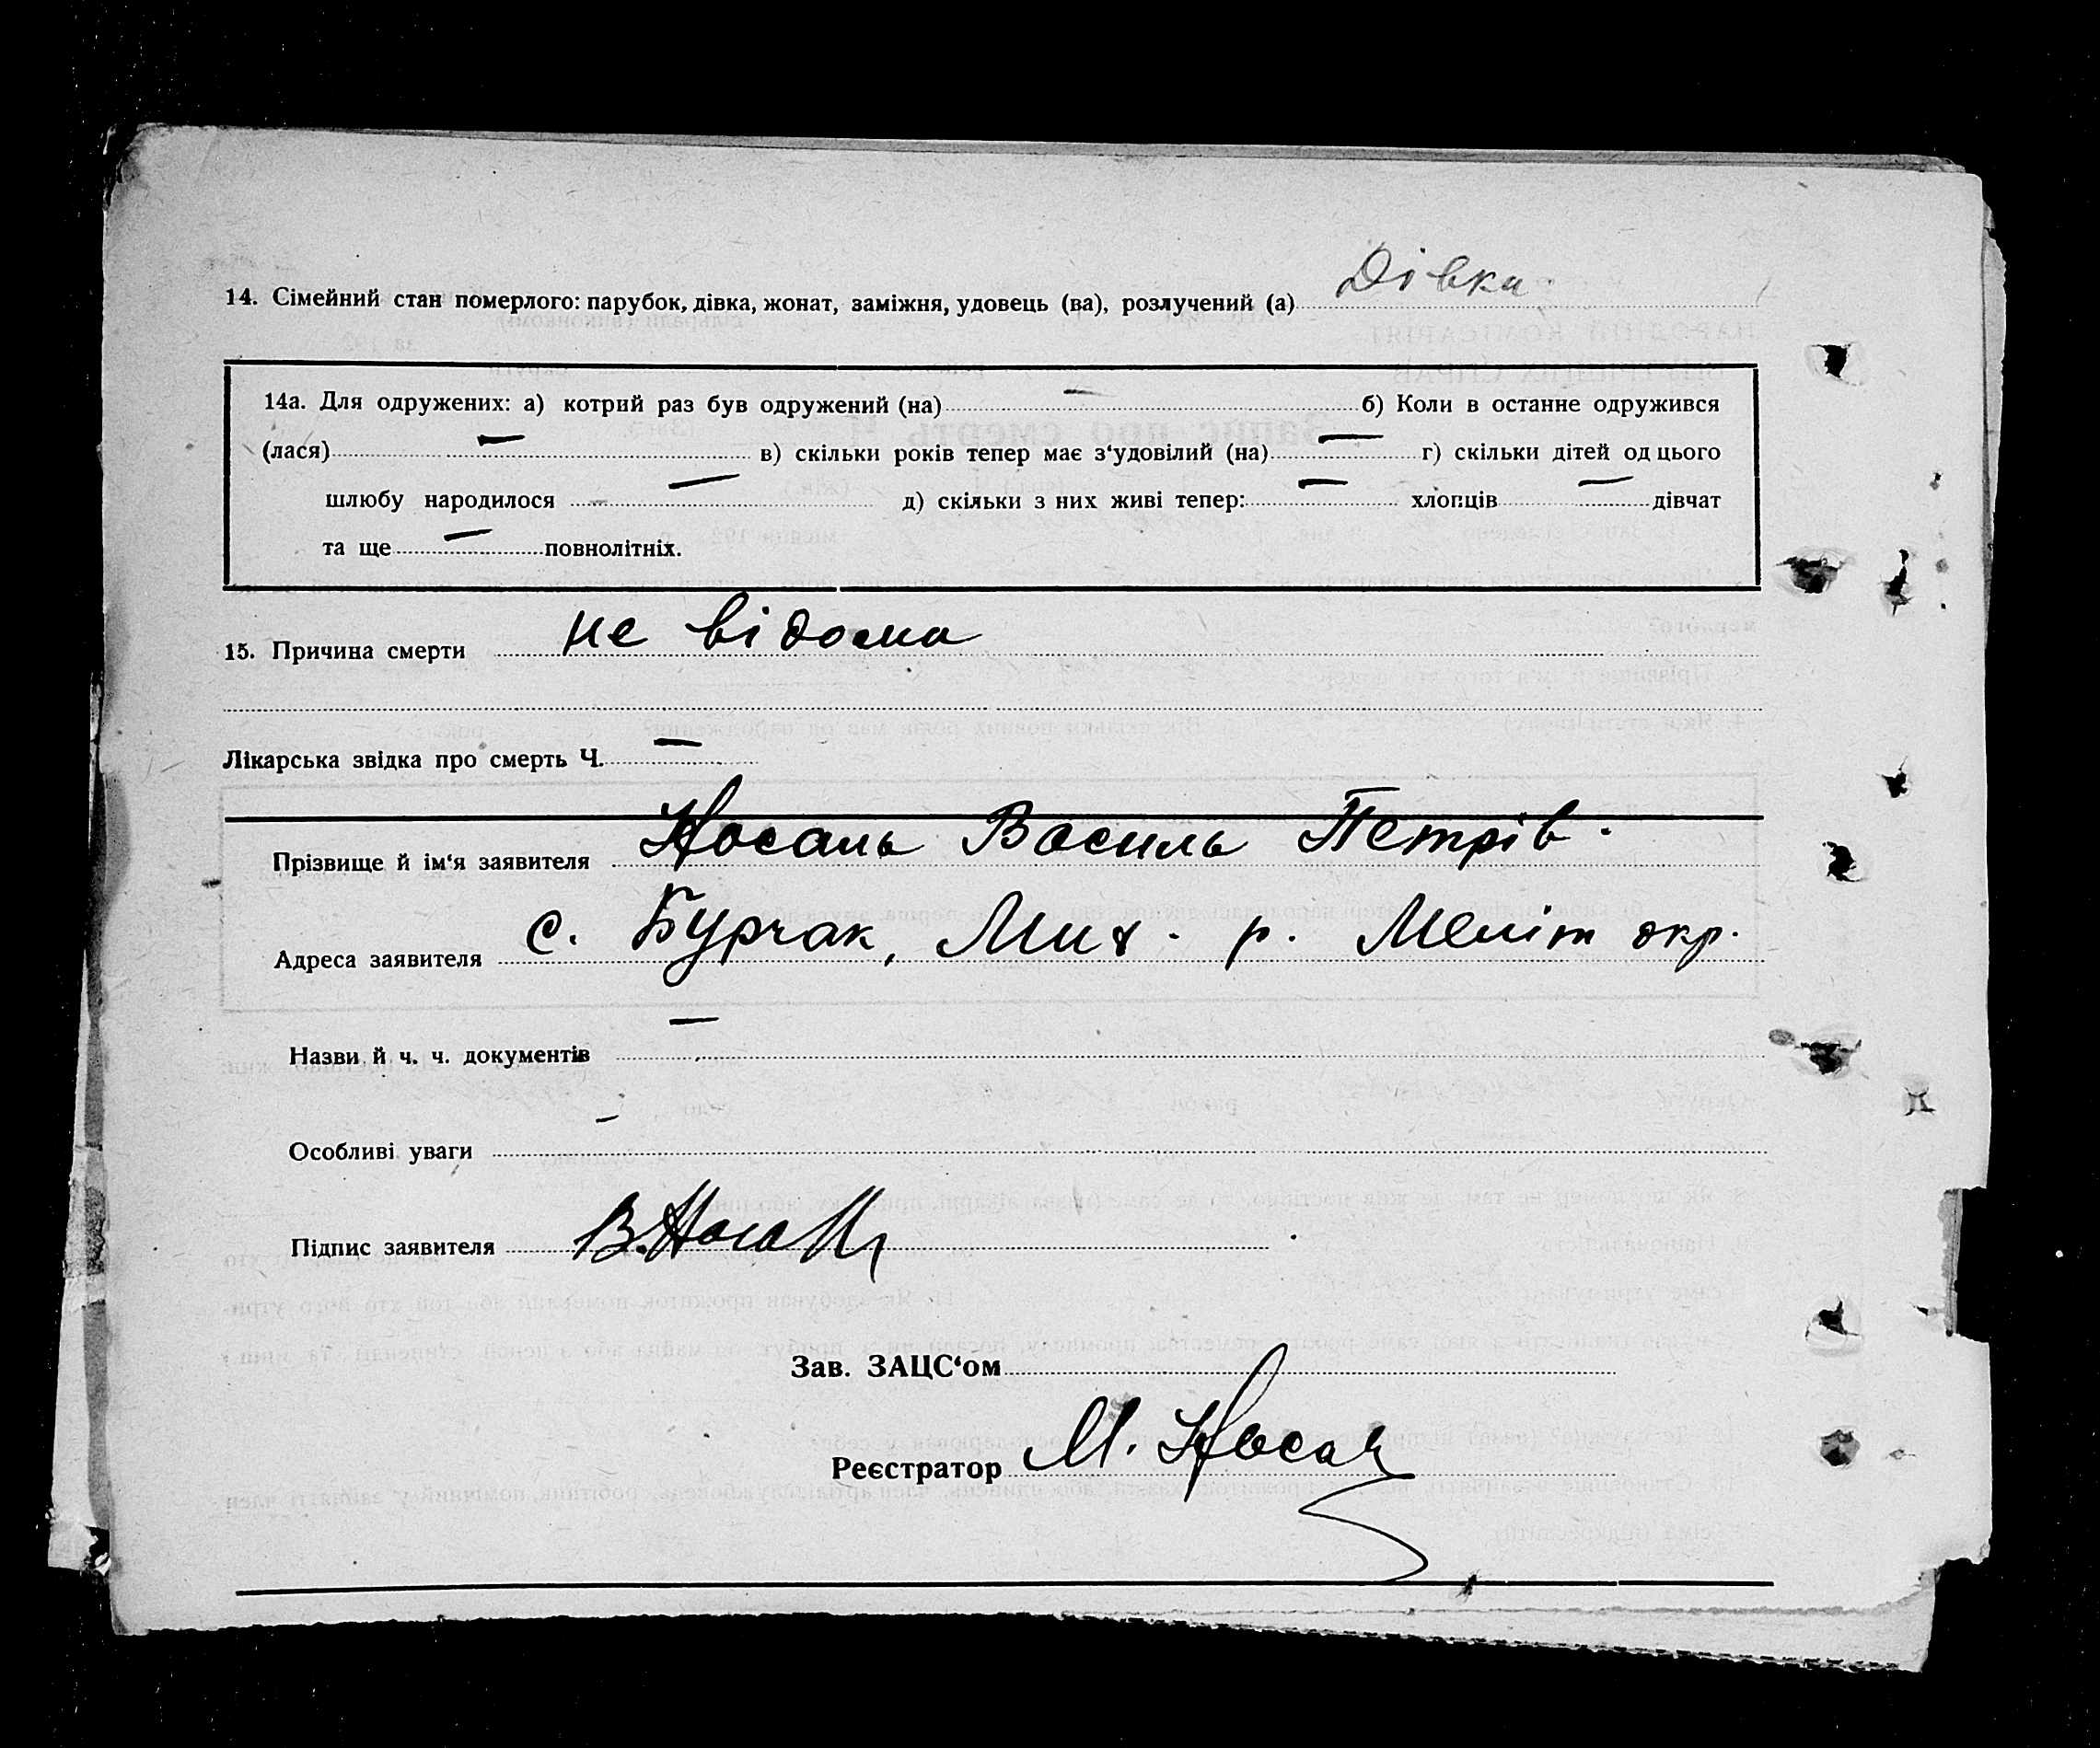 14. Сімейний стан померлого: парубок, дівка, жонат, заміжня, удовець (ва), розлучений (а) Дівка
14а. Для одружених: а) котрий раз був одружений (на) — б) Коли в останне одружився
(лася) — в) скільки років тепер має з‘удовілий (на) — г) скільки дітей од цього
шлюбу народилося — д) скільки з них живі тепер: — хлопців — дівчат
та ще — повнолітніх.
15. Причина смерти не відома
Лікарська звідка про смерть Ч. —
Прізвище й ім‘я заявителя Носаль Василь Петрів.
Адреса заявителя с. Бурчак, Мих. р. Меліт окр.
Назви й ч. ч. документів —
Особливі уваги —
Підпис заявителя В.Носаль
Зав. ЗАЦС‘ом
Реєстратор М. Носаль